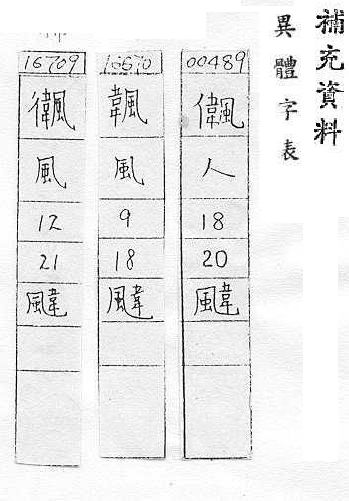 補充資料
異體字表
00489
人
18
20
颹
16670
風
9
18
颹
16709
風
12
21
颹